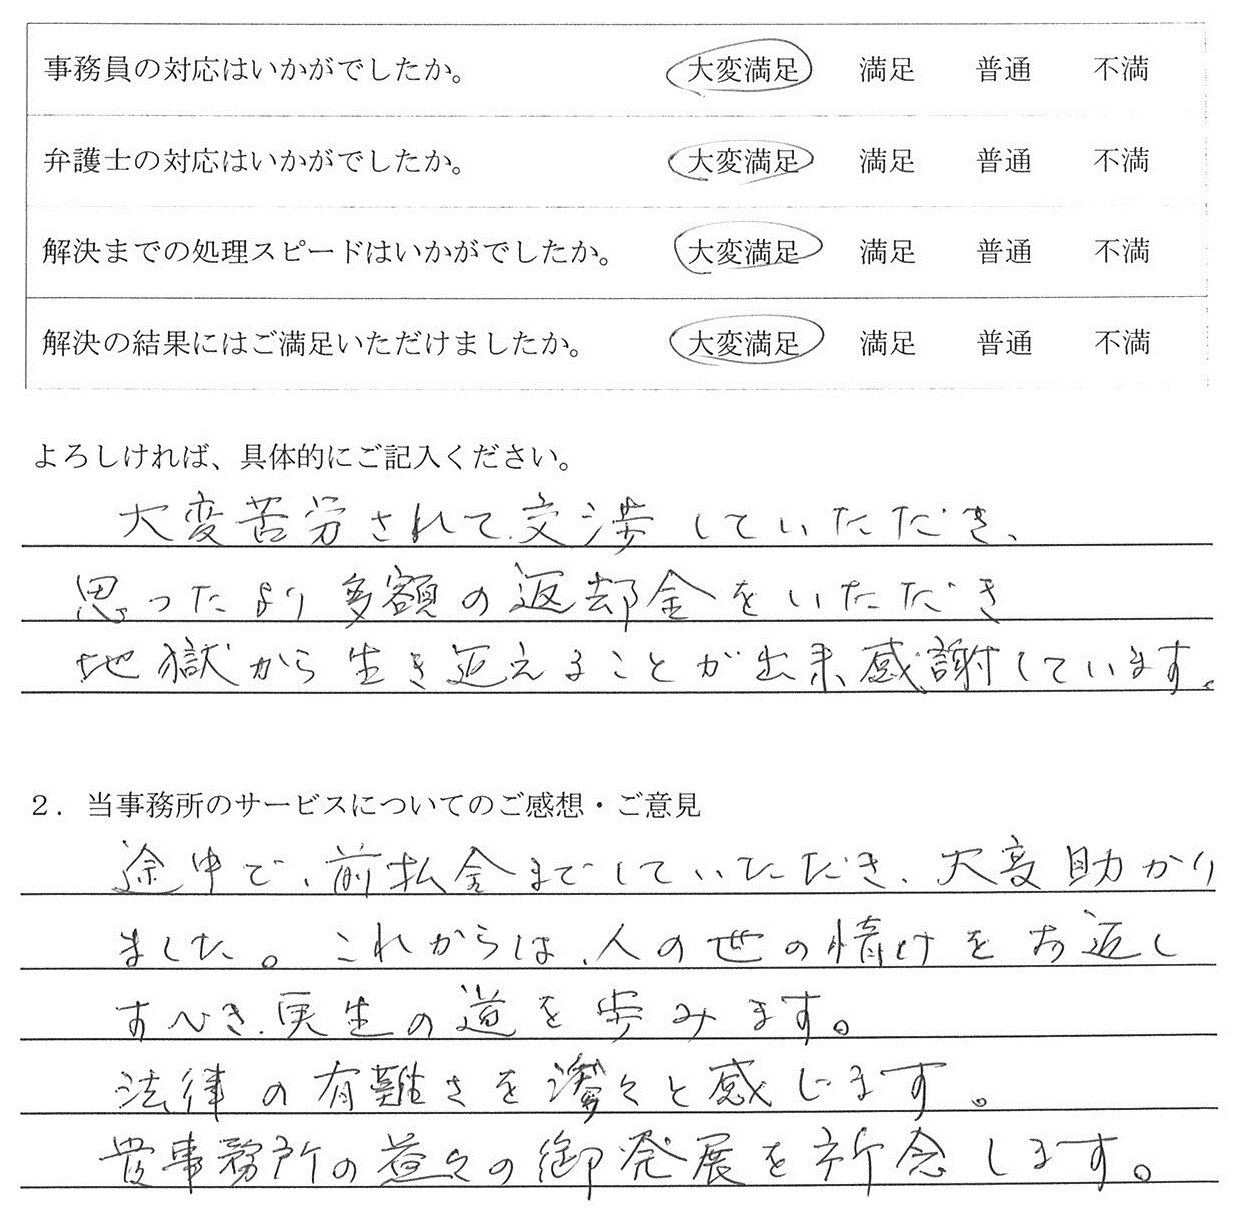 事務員の対応はいかがでしたか。 大変満足 満足 普通 不満
弁護士の対応はいかがでしたか。 大変満足 満足 普通 不満
解決までの処理スピードはいかがでしたか。 大変満足 満足 普通 不満
解決の結果にはご満足いただけましたか。 大変満足 満足 普通 不満
よろしければ、具体的にご記入ください。
大変苦労されて、交渉していただき、
思ったより多額の返却金をいただき
地獄から生き返えることが出来、感謝しています。
２．当事務所のサービスについてのご感想・ご意見
途中で、前払金までしていただき、大変助かり
ました。これからは、人の世の情けをお返し
すべき、更生の道を歩みます。
法律の有難さを と感じます。
貴事務所の益々の御発展を祈念します。